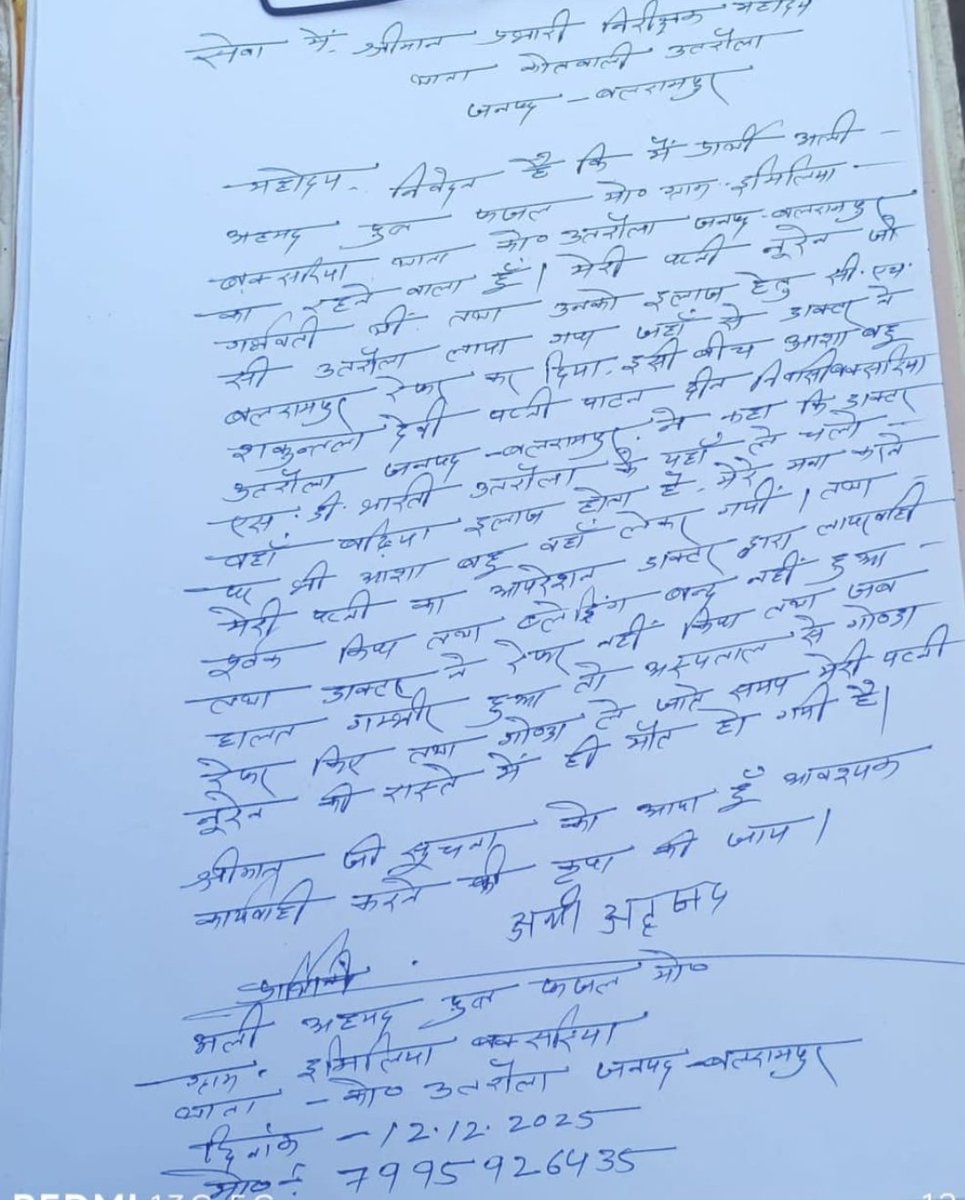 सेवा में, श्रीमान प्रभारी निरीक्षक महोदय
थाना कोतवाली उतरौला
जनपद - बलरामपुर
महोदय, निवेदन है कि मैं प्रार्थी अली -
अहमद पुत्र फजल मो० ग्राम इमिलिया -
बक्सरिया थाना को० उतरौला जनपद-बलरामपुर
का रहने वाला हूँ। मेरी पत्नी नूरेन जो
गर्भवती थीं तथा उनको इलाज हेतु सी.एच.
सी उतरौला लाया गया जहाँ से डाक्टर ने
बलरामपुर रेफर कर दिया. इसी बीच आशा बहू
शकुन्तला देवी पत्नी पाटन दीन निवासी बक्सरिया
उतरौला जनपद - बलरामपुर. ने कहा कि डाक्टर
एस. डी. भारती उतरौला के यहाँ ले चलो -
वहाँ बढ़िया इलाज होता है. मेरे मना करने
पर भी आशा बहू वहाँ लेकर गयीं। तथा
मेरी पत्नी का आपरेशन डाक्टर द्वारा लापरवाही
पूर्वक किया तथा ब्लेडिंग बन्द नहीं हुआ -
तथा डाक्टर ने रेफर नहीं किया तथा जब
हालत गम्भीर हुआ तो अस्पताल से गोण्डा
रेफर किए तथा गोण्डा ले जाते समय मेरी पत्नी
नूरेन की रास्ते में ही मौत हो गयी है।
श्रीमान् जी सूचना को आया हूँ आवश्यक
कार्यवाही करने की कृपा की जाय।
अली अहमद
अली अहमद पुत्र फजल मो०
ग्राम. इमिलिया बक्सरिया
थाना - को० उतरौला जनपद-बलरामपुर
दिनांक - 12.12.2025
मो० - 7995926435